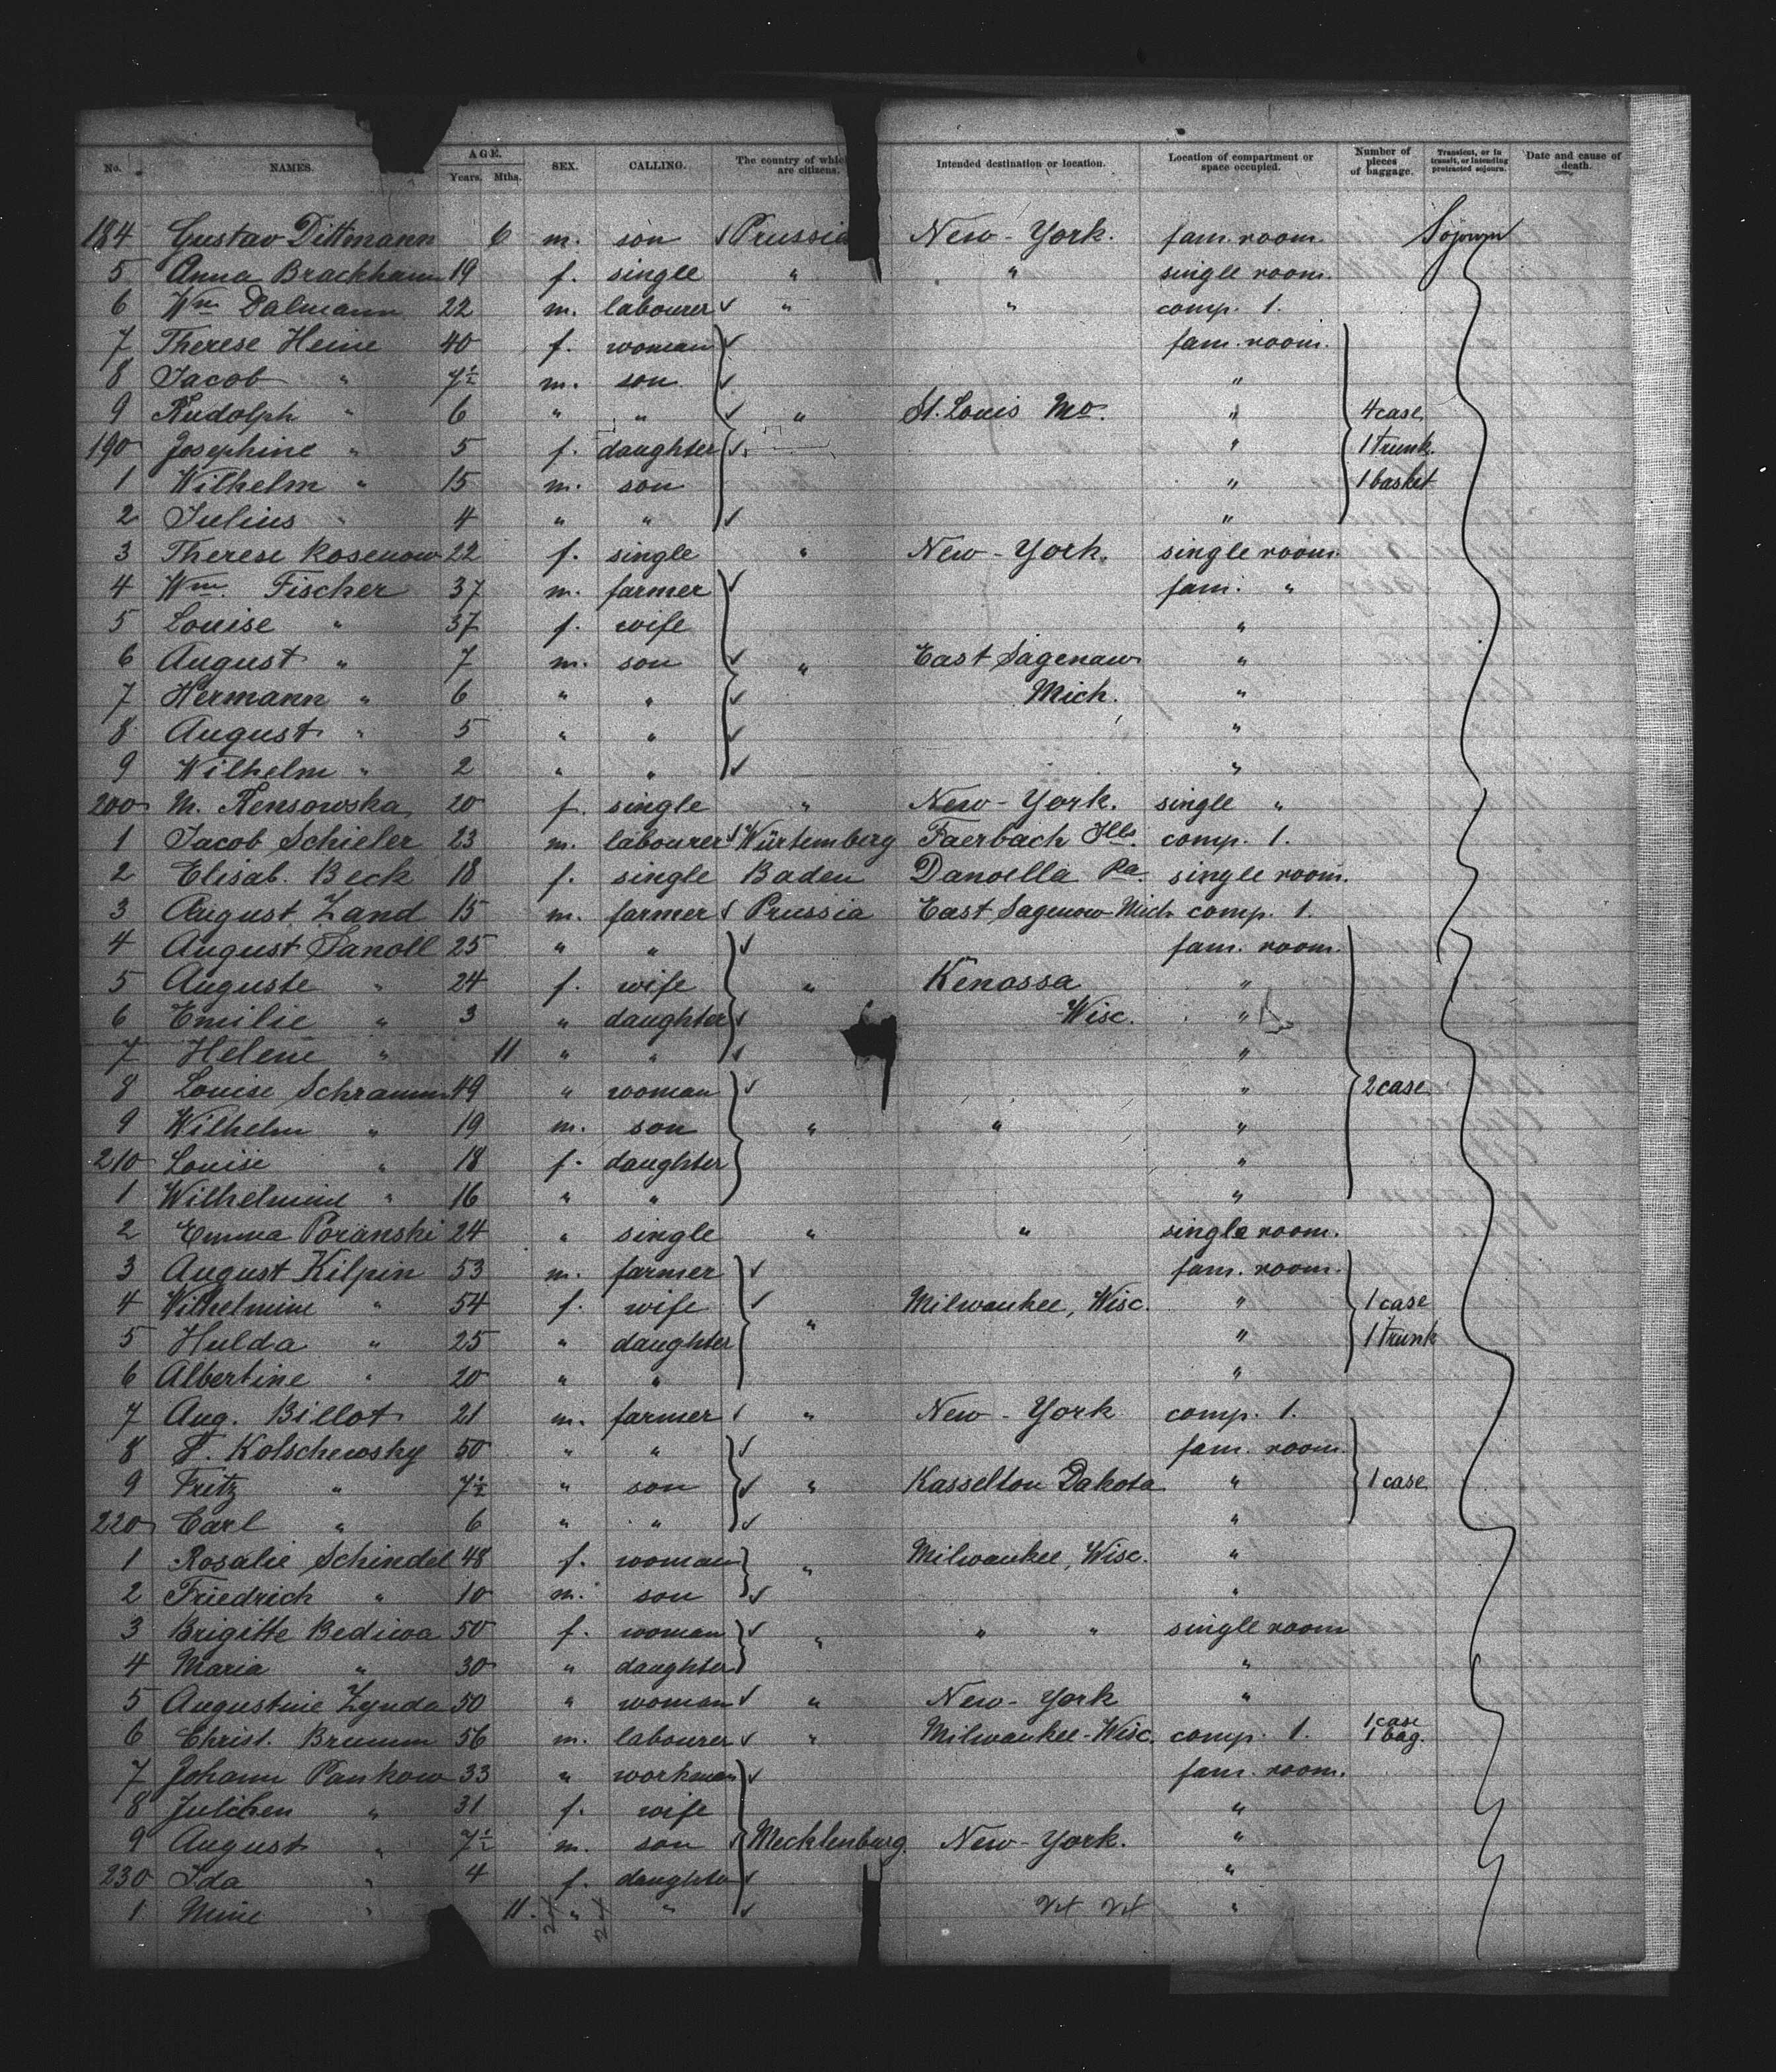 No. NAMES. AGE. Years. Mths. SEX. CALLING. The country of which are citizens. Intended destination or location. Location of compartment or space occupied. Number of pieces of baggage. Transient, or in transit, or intending protracted sojourn. Date and cause of death.
184 Gustav Dittmann 6 m. son Prussia New-York. fam. room. Sojourn
5 Anna Brackhann 19 f. single " " single room.
6 Wm Dalmann 22 m. labourer " " comp. 1.
7 Therese Heine 40 f. woman fam. room.
8 Jacob " 7½ m. son "
9 Rudolph " 6 " " " St. Louis Mo. " 4 case
190 Josephine " 5 f. daughter " 1 trunk.
1 Wilhelm " 15 m. son " 1 basket
2 Julius " 4 " " "
3 Therese Rosenow 22 f. single " New-York. single room.
4 Wm. Fischer 37 m. farmer fam. "
5 Louise " 37 f. wife "
6 August " 7 m. son " East Sagenaw "
7 Hermann " 6 " " Mich. "
8 August " 5 " " "
9 Wilhelm " 2 " " "
200 M. Rensowska 20 f. single " New-York. single "
1 Jacob Schieler 23 m. labourer Würtemberg Faerbach Ills. comp. 1.
2 Elisab. Beck 18 f. single Baden Danoella Pa. single room.
3 August Zand 15 m. farmer Prussia East Sagenow Mich comp. 1.
4 August Sanoll 25 " " fam. room.
5 Auguste " 24 f. wife " Kenossa "
6 Emilie " 3 " daughter Wisc. "
7 Helene " 11 " " "
8 Louise Schramm 49 " woman " 2 case
9 Wilhelm " 19 m. son " " "
210 Louise " 18 f. daughter "
1 Wilhelmine " 16 " " "
2 Emma Poranski 24 " single " " single room.
3 August Kilpin 53 m. farmer fam. room.
4 Wilhelmine " 54 f. wife " Milwaukee, Wisc. " 1 case
5 Hulda " 25 " daughter " 1 trunk
6 Albertine " 20 " " "
7 Aug. Billot 21 m. farmer " New-York comp. 1.
8 F. Kolschewsky 50 " " fam. room.
9 Fritz " 7½ " son " Kasselton Dakota " 1 case
220 Carl " 6 " " "
1 Rosalie Schindel 48 f. woman " Milwaukee, Wisc. "
2 Friedrich " 10 m. son "
3 Brigitte Bediwa 50 f. woman " " " single room
4 Maria " 30 " daughter "
5 Augustine Zynda 50 " woman " New-York "
6 Christ. Brumm 56 m. labourer " Milwaukee-Wisc. comp. 1. 1 case 1 bag.
7 Johann Pankow 33 " workman fam. room.
8 Julchen " 31 f. wife "
9 August " 7½ m. son Mecklenburg New-York. "
230 Ida " 4 f. daughter "
1 Mine " 11. " " "